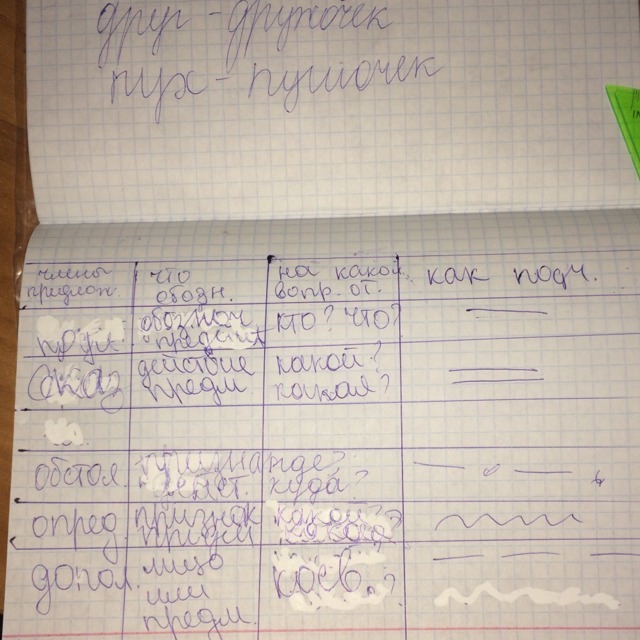 друг - дружочек
пух - пушочек
члены предлож.
что обозн.
на какой вопр. от.
как подч.
подл.
обознач предмет
кто? что?
сказ
действие предм.
какой? какая?
обстоя.
где? куда?
опред.
признак предм
допол.
лицо или предм.
косв. ?